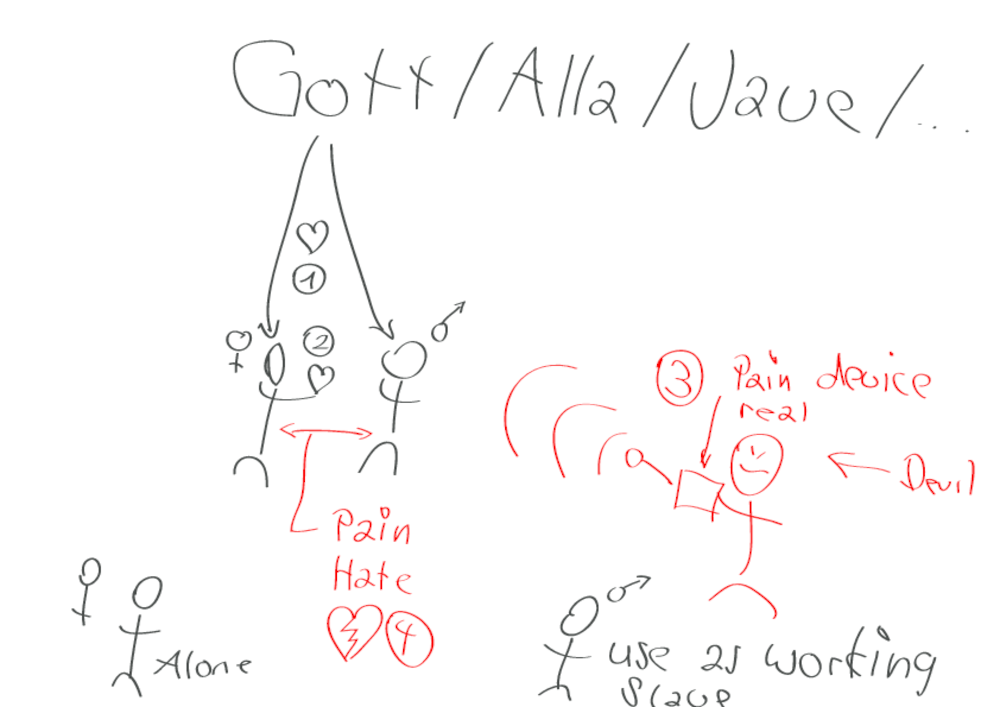 Gott/Alla/Jave/...
1
2
3 Pain device
real
Devil
Pain
Hate
4
Alone
use as working
slave